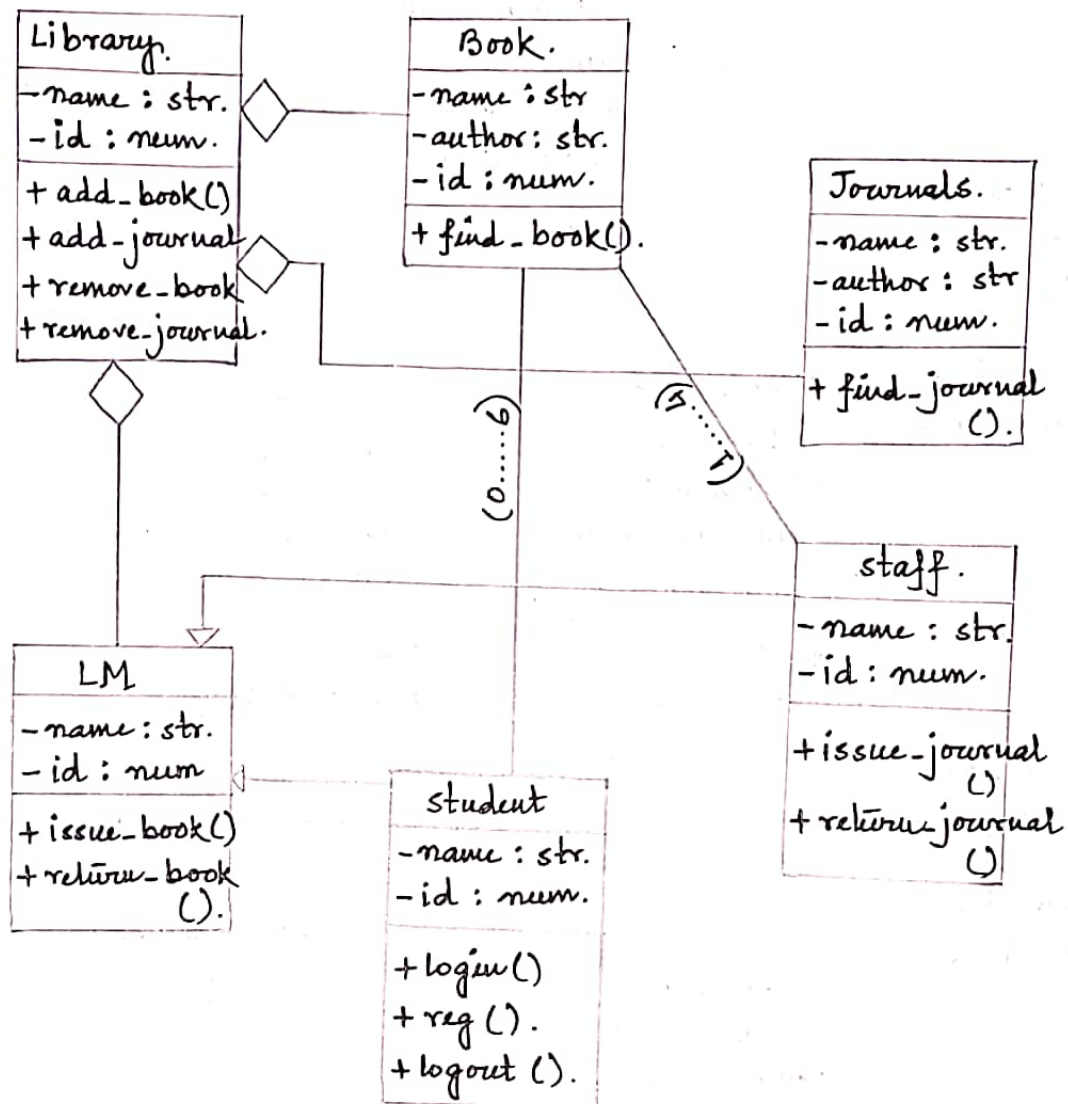 Library.
-name : str.
-id : num.
+ add_book()
+ add_journal
+ remove_book
+ remove_journal.
Book.
-name : str
-author: str.
-id : num.
+ find_book().
Journals.
-name : str.
-author : str
-id : num.
+ find_journal
().
(0......6)
staff.
-name : str.
-id : num.
+issue_journal
()
+return_journal
()
LM
-name : str.
-id : num
+issue_book()
+return_book
().
student
-name : str.
-id : num.
+login()
+reg ().
+logout ().